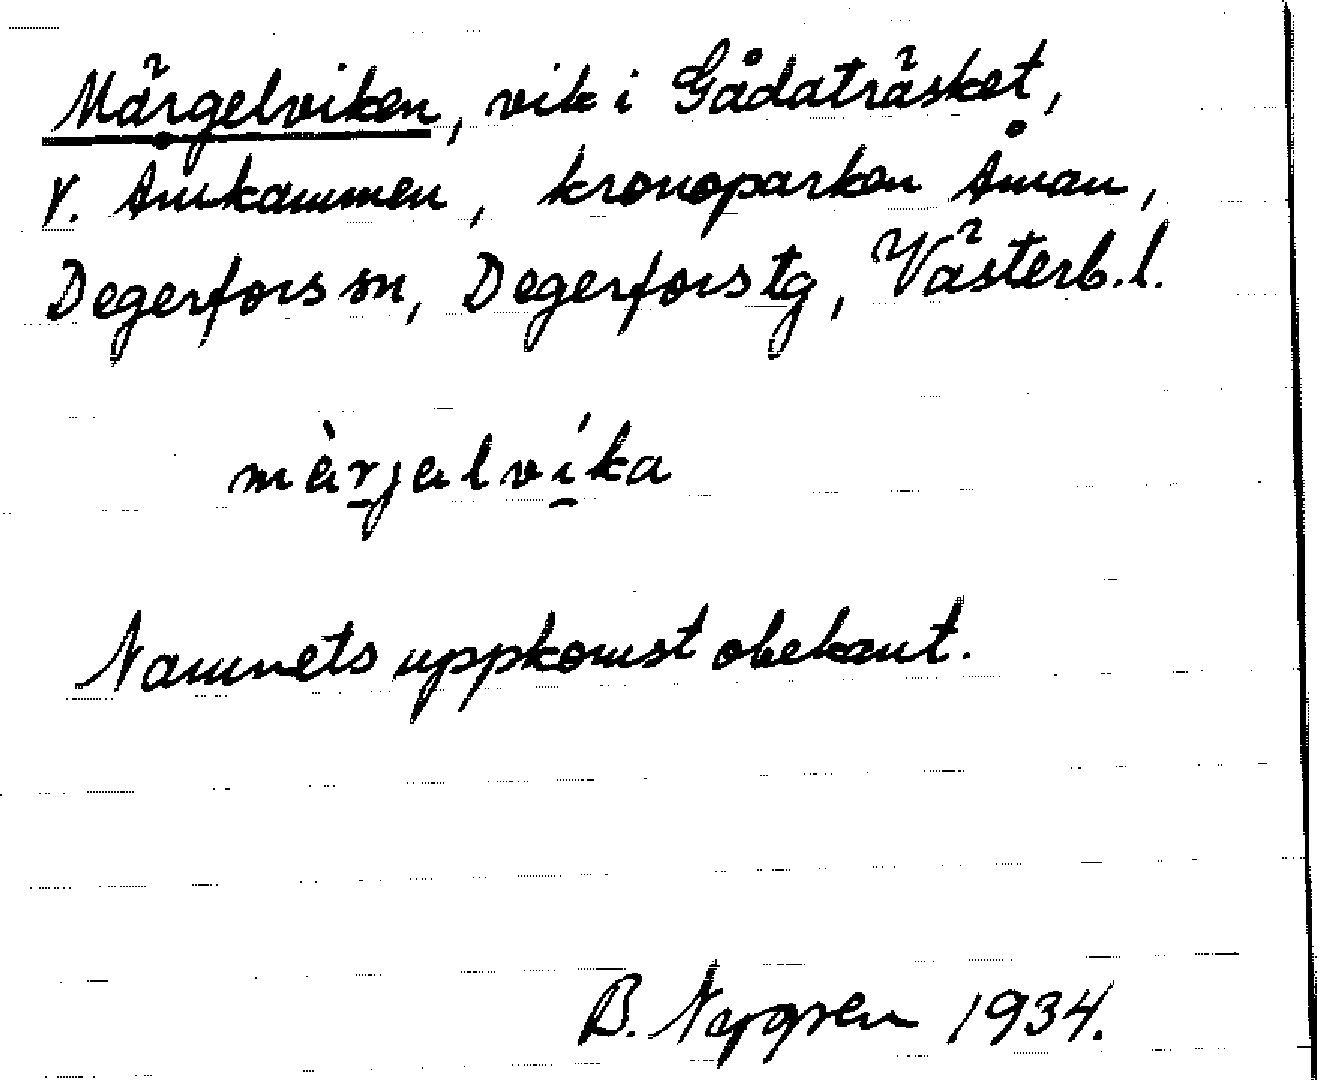 Märgelviken, vik i Gådaträsket,
V. Åmkammen, kronoparken Åman,
Degerfors sn, Degerfors tg, Västerb. l.
màrjalvíka
Namnets uppkomst obekant.
B. Nygren 1934.